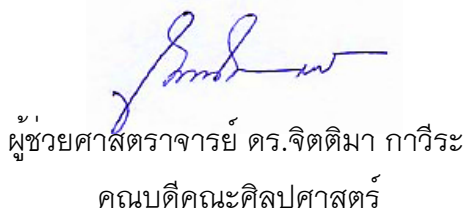 ผู้ช่วยศาสตราจารย์ ดร.จิตติมา กาวีระ
คณบดีคณะศิลปศาสตร์